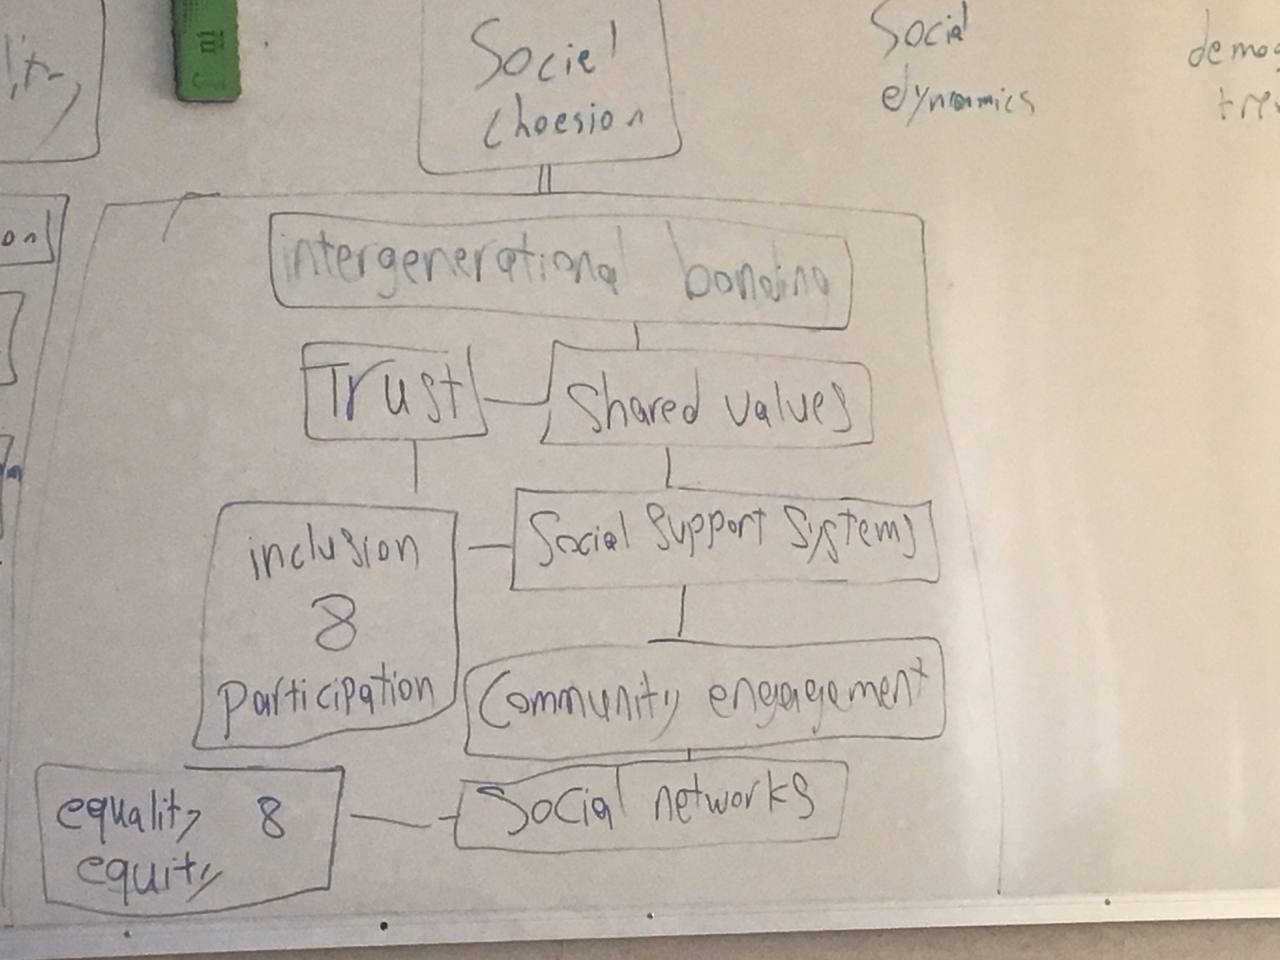 Social
Choesion
Social
dynamics
intergenerational bonding
Trust
Shared values
inclusion
8
participation
Social Support Systems
Community engagement
equality 8
equity
Social networks